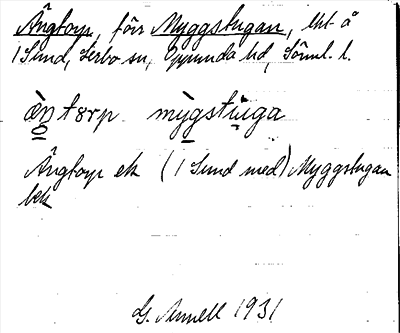 Ängtorp, förr Myggstugan, lht å
1 Sund, Lerbo sn, Oppunda hd, Söml. l.
ä̀ntɤrp mỳgstùga
Ängtorp ek (1 Sund med) Myggstugan
bek
G. Annell 1931